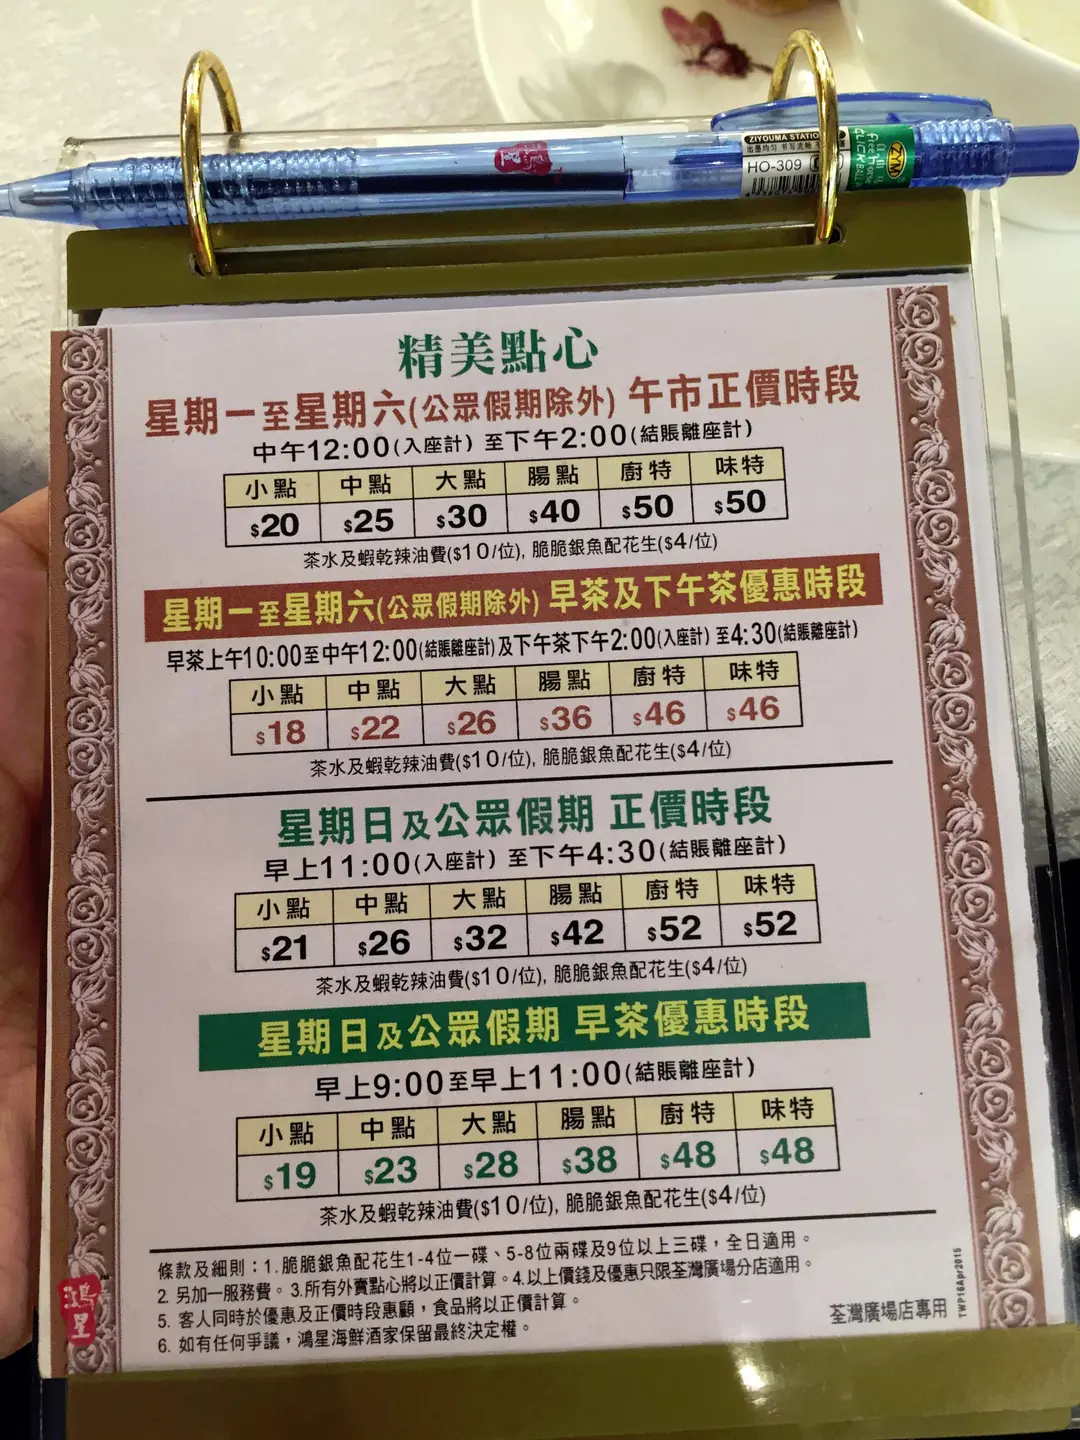 ZIYOUMA STATIO
出墨均匀 书写流畅
HO-309
自由馬
freehorse
CLICK BALL
ZYM
精美點心
星期一至星期六(公眾假期除外) 午市正價時段
中午12:00(入座計) 至下午2:00(結賬離座計)
小點 中點 大點 腸點 廚特 味特
$20 $25 $30 $40 $50 $50
茶水及蝦乾辣油費($10/位), 脆脆銀魚配花生($4/位)
星期一至星期六(公眾假期除外) 早茶及下午茶優惠時段
早茶上午10:00至中午12:00(結賬離座計)及下午茶下午2:00(入座計) 至4:30(結賬離座計)
小點 中點 大點 腸點 廚特 味特
$18 $22 $26 $36 $46 $46
茶水及蝦乾辣油費($10/位), 脆脆銀魚配花生($4/位)
星期日及公眾假期 正價時段
早上11:00(入座計) 至下午4:30(結賬離座計)
小點 中點 大點 腸點 廚特 味特
$21 $26 $32 $42 $52 $52
茶水及蝦乾辣油費($10/位), 脆脆銀魚配花生($4/位)
星期日及公眾假期 早茶優惠時段
早上9:00至早上11:00(結賬離座計)
小點 中點 大點 腸點 廚特 味特
$19 $23 $28 $38 $48 $48
茶水及蝦乾辣油費($10/位), 脆脆銀魚配花生($4/位)
條款及細則：1. 脆脆銀魚配花生1-4位一碟、5-8位兩碟及9位以上三碟，全日適用。
2. 另加一服務費。 3.所有外賣點心將以正價計算。4.以上價錢及優惠只限荃灣廣場分店適用。
5. 客人同時於優惠及正價時段惠顧，食品將以正價計算。
6. 如有任何爭議，鴻星海鮮酒家保留最終決定權。
荃灣廣場店專用
TWP16Apr2015
鴻星